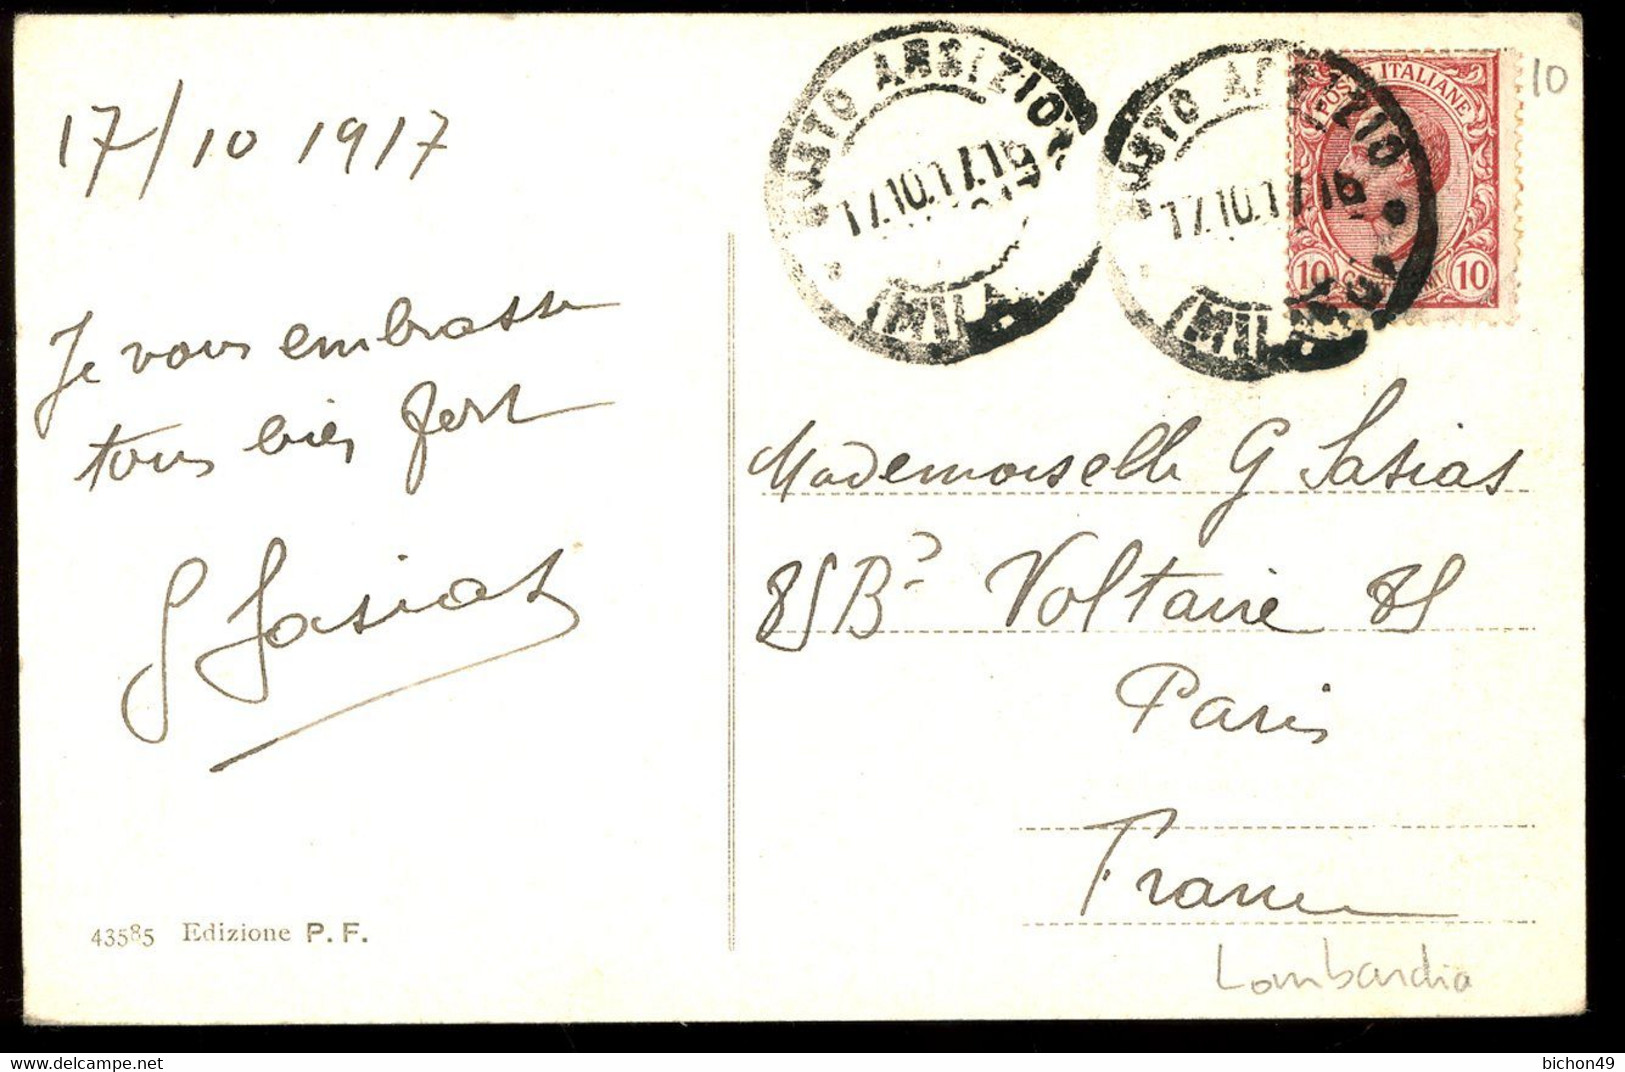 17/10 1917
Je vous embrasse
tous bien fort
G Sasias
43585 Edizione P. F.
BUSTO ARSIZIO
17.10.17.16
(MILANO)
BUSTO ARSIZIO
17.10.17.16
(MILANO)
POSTE ITALIANE
10 CENTESIMI 10
10
Mademoiselle G Sasias
85 Bd Voltaire 85
Paris
France
Lombardia
bichon49